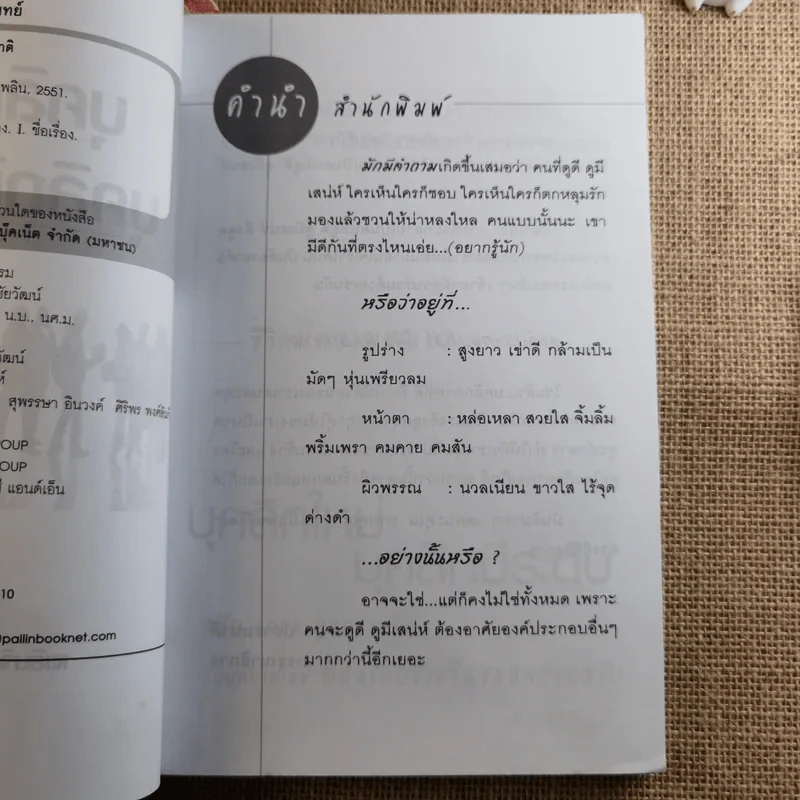 ทย์
าติ
พลิน, 2551.
ง. I. ชื่อเรื่อง.
วนใดของหนังสือ
บุ๊คเน็ต จำกัด (มหาชน)
รม
ชัยวัฒน์
น.บ., นศ.ม.
วัฒน์
ห์
สุพรรษา อินวงค์ ศิริพร
OUP
OUP
แอนด์เอ็น
10
pailinbooknet.com
คำนำ สำนักพิมพ์
มักมีคำถามเกิดขึ้นเสมอว่า คนที่ดูดี ดูมี
เสน่ห์ ใครเห็นใครก็ชอบ ใครเห็นใครก็ตกหลุมรัก
มองแล้วชวนให้น่าหลงใหล คนแบบนั้นนะ เขา
มีดีกันที่ตรงไหนเอ่ย...(อยากรู้นัก)
หรือว่าอยู่ที่...
รูปร่าง : สูงยาว เข่าดี กล้ามเป็น
มัดๆ หุ่นเพรียวลม
หน้าตา : หล่อเหลา สวยใส จิ้มลิ้ม
พริ้มเพรา คมคาย คมสัน
ผิวพรรณ : นวลเนียน ขาวใส ไร้จุด
ด่างดำ
...อย่างนั้นหรือ ?
อาจจะใช่...แต่ก็คงไม่ใช่ทั้งหมด เพราะ
คนจะดูดี ดูมีเสน่ห์ ต้องอาศัยองค์ประกอบอื่นๆ
มากกว่านี้อีกเยอะ